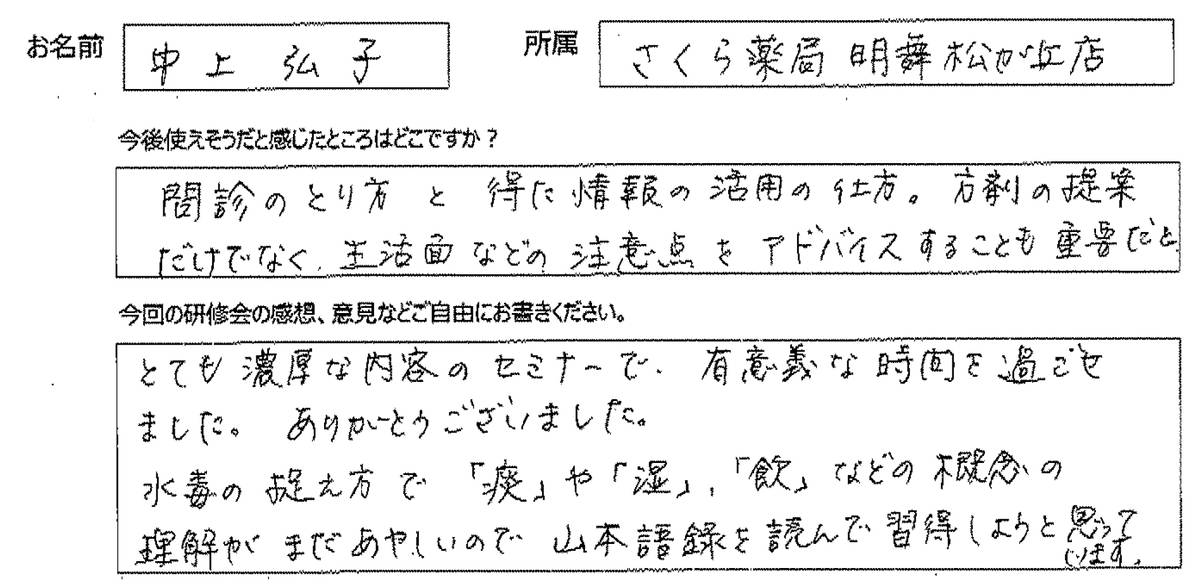 お名前 中上 弘子 所属 さくら薬局 明舞松が丘店
今後使えそうだと感じたところはどこですか？
問診のとり方と 得た情報の活用の仕方。方剤の提案
だけでなく、生活面などの注意点を アドバイスすることも重要だと
今回の研修会の感想、意見などご自由にお書きください。
とても濃厚な内容のセミナーで、有意義な時間を過ごせ
ました。ありがとうございました。
水毒の捉え方で「痰」や「湿」，「飲」などの概念の
理解が まだあやしいので 山本語録を読んで習得しようと思って
います。